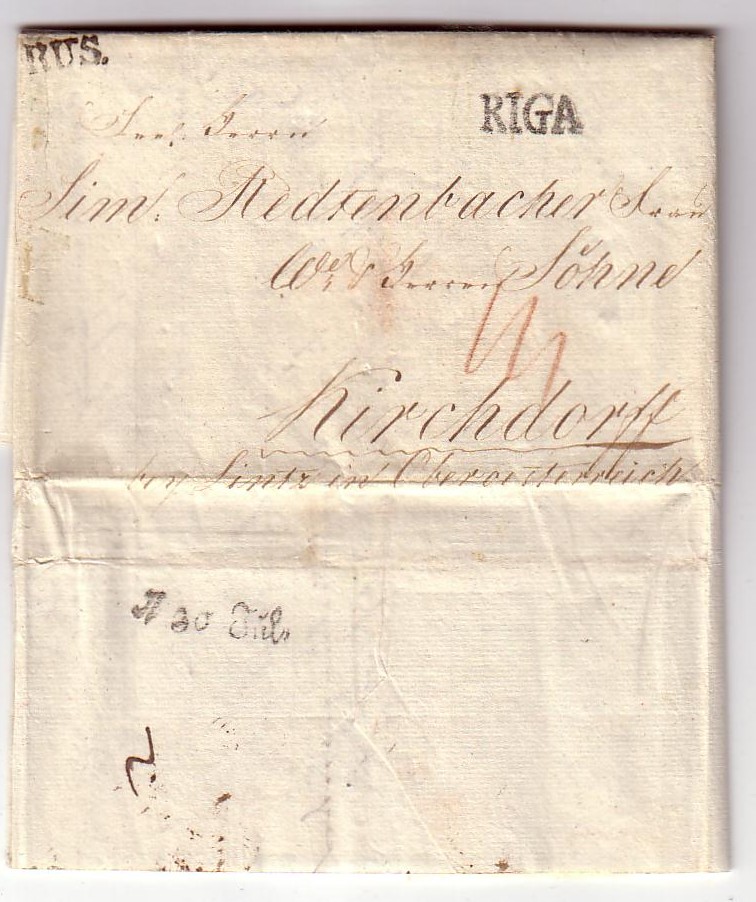 RUS.
RIGA
Herrn
Sim. Redtenbacher Frau
We & Herren Söhne
Kirchdorff
bey Lintz in Oberoesterreich
30 Jul.
2